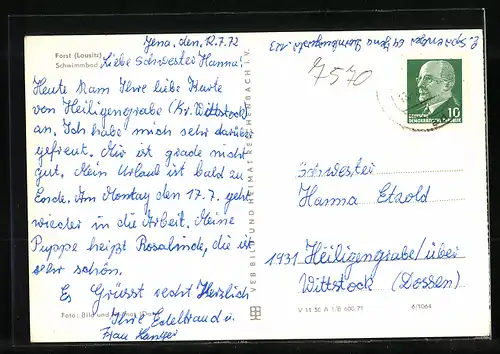 Jena. den, 12.7.72
Forst (Lausitz)
Schwimmbad
Liebe Schwester Hanna!
Heute kam Ihre liebe Karte
von Heiligengrabe (Kr. Wittstock)
an. Ich habe mich sehr darüber
gefreut. Mir ist grade nicht
gut. Mein Urlaub ist bald zu
Ende. Am Montag den 17.7. geht
wieder in die Arbeit. Meine
Puppe heißt Rosalinde, die ist
sehr schön.
Es Grüsst recht Herzlich
Foto: Bild und Heimat
Ihre Edeltraud u.
Frau
VEB BILD UND HEIMAT REICHENBACH I. V.
E. 69 Jena 113
7570
10
DEUTSCHE
DEMOKRATISCHE REPUBLIK
Schwester
Hanna Etzold
1931 Heiligengrabe/über
Wittstock (Dossen)
V 11 50 A 1/B 600 71
6/1064